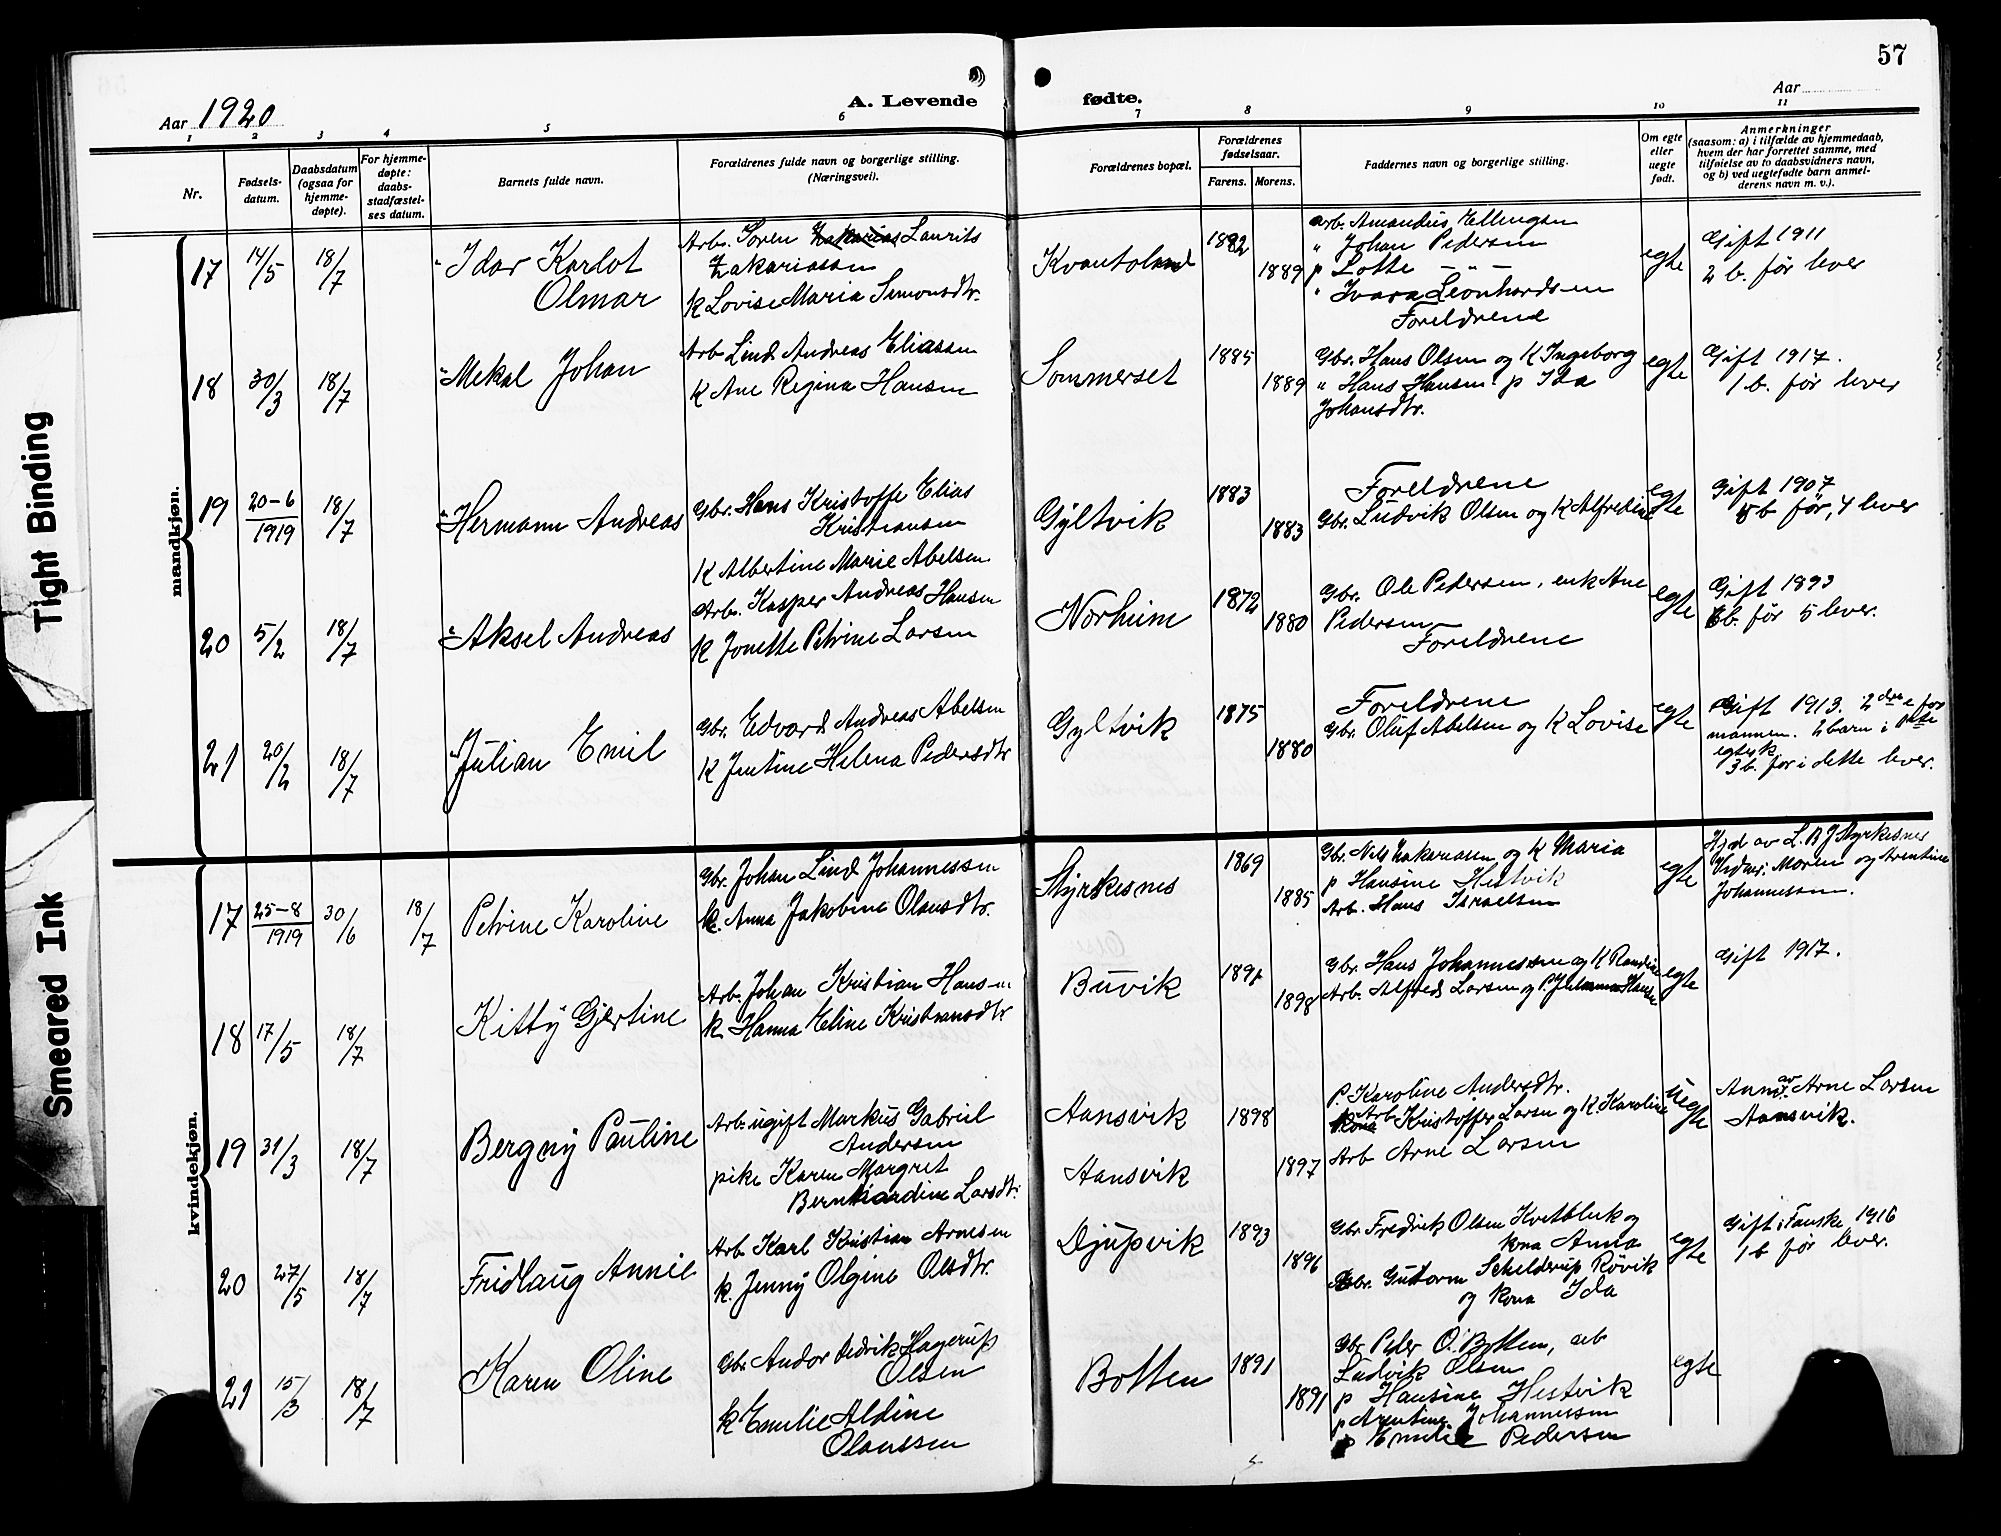 57
Aar 1920
A. Levende fødte.
Aar
1 2 3 4 5 6 7 8 9 10 11
Nr.
Fødsels-
datum.
Daabsdatum
(ogsaa for
hjemme-
døpte).
For hjemme-
døpte:
daabs-
stadfæstel-
ses datum.
Barnets fulde navn.
Forældrenes fulde navn og borgerlige stilling.
(Næringsvei).
Forældrenes bopæl.
Forældrenes
fødselsaar.
Farens. Morens.
Faddernes navn og borgerlige stilling.
Om egte
eller
uegte
født.
Anmerkninger
(saasom: a) i tilfælde av hjemmedaab,
hvem der har forrettet samme, med
tilføielse av to daabsvidners navn,
og b) ved uegtefødte barn anmel-
derens navn m. v.).
mandkjøn.
17 14/5 18/7
Idar Karlot
Olmar
Arb. Søren Zakarias Laurits
Zakariassen
K Lovise Maria Simonsdtr.
Kvantoland
1882
1889
arb. Amandus Ellingsen
" Johan Pedersen
p Lotte "
" Ivara Leonhardsen
Foreldrene
egte
Gift 1911
2 b. før lever
18 30/3 18/7
Mekal Johan
Arb Lind Andreas Eliassen
K Ane Regina Hansen
Sommerset
1885
1889
Gbr. Hans Olsen og K Ingeborg
" Hans Hansen. p Ida
Johansdtr.
egte
Gift 1917.
1 b. før lever
19 20-6/1919 18/7
Hermann Andreas
Gbr. Hans Kristoffe Elias
Kristiansen
K Albertine Marie Abelsen
Gyltvik
1883
1883
Foreldrene
Gbr. Ludvik Olsen og K Alfredine
egte
Gift 1907
5 b før, 4 lever
20 5/2 18/7
Aksel Andreas
Arb. Kasper Andreas Hansen
K Jonette Petrine Larsen
Norheim
1872
1880
Gbr. Ole Pedersen, enk Ane
Pedersen
Foreldrene
egte
Gift 1893
6b. før 5 lever.
21 20/2 18/7
Julian Emil
Gbr. Edvard Andreas Abelsen
K Jentine Helena Pedersdtr
Gyltvik
1875
1880
Foreldrene
Gbr. Oluf Abelsen og K Lovise
egte
Gift 1913. 2den e for
mannen. 2 barn i 1ste
egtsk.
3b. før i dette lever.
kvindekjøn.
17 25-8/1919 30/6 18/7
Petrine Karoline
Gbr. Johan Lind Johannessen
K. Anna Jakobine Olausdtr.
Styrkesnes
1869
1885
Gbr. Nils Zakariasen og K Maria
p Hansine Hestvik
Arb. Hans Israelsen
egte
Hjd av L. B J Styrkesnes
Vidner: Moren og Arentine
Johannessen.
18 17/5 18/7
Kitty Gjertine
Arb. Johan Kristian Hansen
K Hanna Eline Kristiansdtr
Buvik
1891
1898
Gbr. Hans Johannessen og K Randine
Arb. Alfred Larsen og P. Julianna Hansen
egte
Gift 1917.
19 31/3 18/7
Bergny Pauline
Arb. ugift Markus Gabriel
Andersen
pike Karen Margret
Bernhardine Larsdtr.
Aansvik
Aansvik
1898
1897
P. Karoline Andersdtr.
Arb Kristoffer Larsen og K. Karoline
Arb Arne Larsen
Uegte
Anm. av Arne Larsen
Aansvik.
20 27/5 18/7
Fridlaug Annie
Arb. Karl Kristian Arnesen
K. Jenny Olgine Olsdtr.
Djupvik
1893
1896
Gbr Fredrik Olsen Kvitblik og
kona Anna
Gbr. Guttorm Schelderup Røvik
og kona Ida
egte
Gift i Fauske 1916
1 b før lever.
21 15/3 18/7
Karen Oline
Gbr. Andor Didrik Hagerup
Olsen
K Emelie Aldine
Olaussen
Botten
1891
1891
Gbr Peder O. Botten, arb
Ludvik Olsen
p Hansine Hestvik
p Arentine Johannessen
p Emelie Pedersen
egte
Tight Binding
Smeared Ink